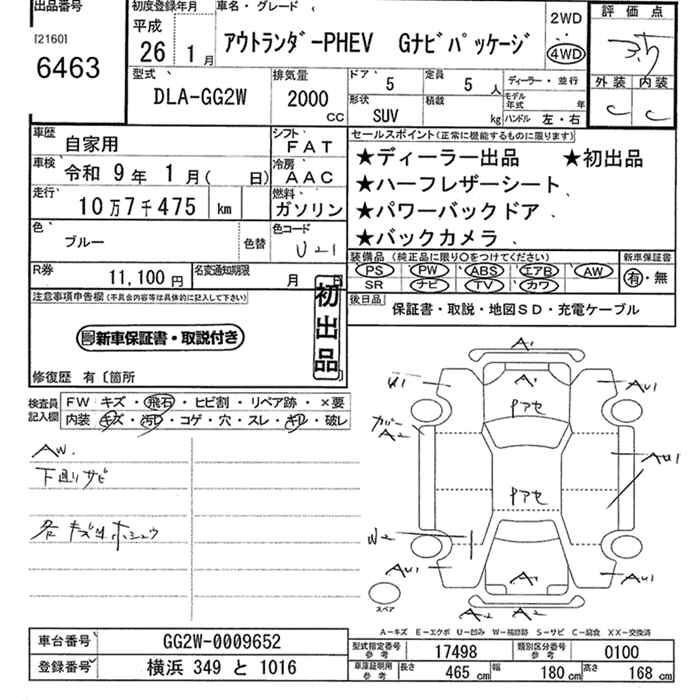 出品番号
[2160]
6463
初度登録年月
平成
26年1月
車名・グレード
アウトランダｰPHEV Gナビパッケージ
2WD
4WD
評価点
外装 内装
C C
型式
DLA-GG2W
排気量
2000
CC
ドア
5
定員
5人
形状
SUV
積載
kg
ディーラー・並行
モデル年式 年
ハンドル 左・右
車歴
自家用
シフト
FAT
車検
令和 9年 1月( 日)
冷房
AAC
走行
10万7千475 km
燃料
ガソリン
色
ブルー
色替
色コード
U21
R券
11,100円
名変通知期限
月 日
セールスポイント(正常に機能するものに限ります)
★ディーラー出品 ★初出品
★ハーフレザーシート
★パワーバックドア
★バックカメラ
装備品(純正品に限り○をつけてください)
PS PW ABS エアB AW
SR ナビ TV カワ
新車保証書
有・無
後日品
保証書・取説・地図SD・充電ケーブル
注意事項申告欄(不具合内容等は具体的に記入して下さい)
新車保証書・取説付き
初出品
修復歴 有〔箇所
検査員記入欄
FW キズ・飛石・ヒビ割・リペア跡・×要
内装 キズ・汚れ・コゲ・穴・スレ・キレ・破レ
AW.
下廻りサビ
各キズ凹ホシュウ
A1
U1
AU1
Pアセ
カバー
A2
AU1
Pアセ
W2
AU1
A1
AU1
スペア
A2 A2
A-キズ E-エクボ U-凹み W-補修跡 S-サビ C-腐食 XX-交換済
車台番号
GG2W-0009652
登録番号
横浜 349 と 1016
型式指定番号
参考
17498
類別区分番号
参考
0100
車庫証明用
参考
長さ
465 cm
幅
180 cm
高さ
168 cm